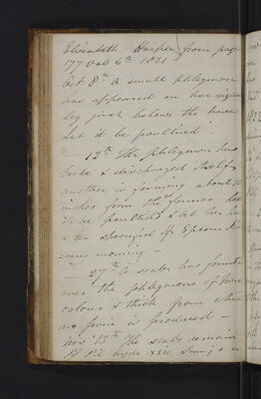 Elizabeth Harper from page
177 Vol 6th 1821
Oct 8th A small phlegmon
has appeared on her right
leg just below the knee
Let it be poulticed.
12th The phlegmon has
broke & discharged itself
another is forming about
inches from the former
to be poulticed & let her
a tea spoonful of Epsom
every morning —
27th A scab has formed
over the phlegmons of
colour & thick from
no pain is produced —
Nov 13th The scabs remain